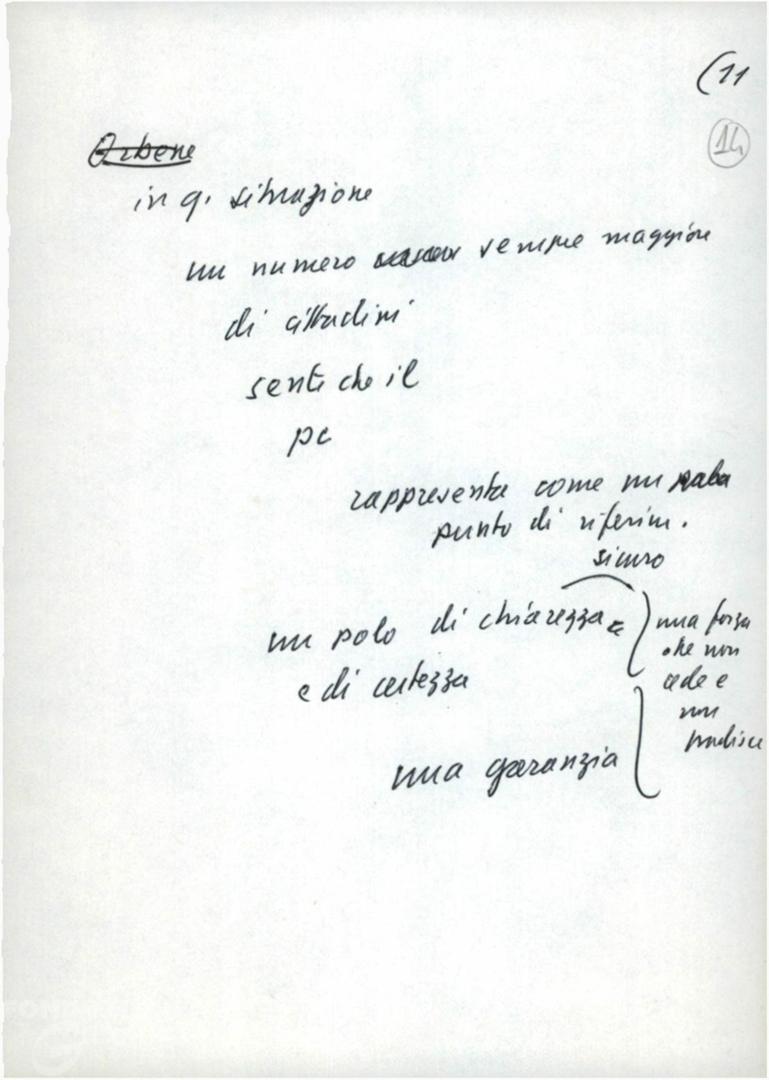 (11
14
Orbene
in q. situazione
un numero sempre maggiore
di cittadini
sente che il
pc
rappresenta come un
punto di riferim.
sicuro
un polo di chiarezza e
e di certezza
una garanzia
una forza
che non
cede e
non
tradisce